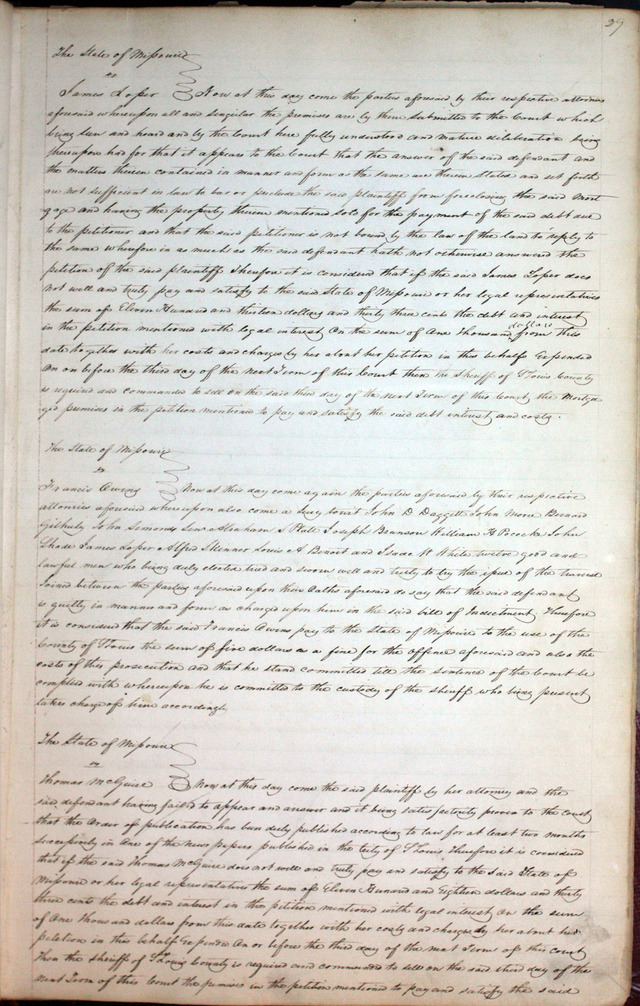 29
The State of Missouri
vs
James Loper Now at this day come the parties aforesaid by their respective attornies
aforesaid whereupon all and singular the premises are by them submitted to the Court which
being seen and heard and by the Court here fully understood and mature deliberation being
thereupon had for that it appears to the Court that the answer of the said defendant and
the matters therein contained in manner and form as the same are therein stated and set forth
are not sufficient in law to bar or preclude the said plaintiff form foreclosing the said mort
gage and having the property therein mentioned sold for the payment of the said debt due
to the petitioner and that the said petitioner is not bound by the law off the land to reply to
the same wherefore in as much as the said defendant hath not otherwise answered the
petition off the said plaintiff Therefore it is considered that if the said James Loper does
not well and truly pay and satisfy to the said State of Missouri or her legal representatives
the sum of Eleven Hundred and thirteen dollars and thirty three cents the debt and interest
in the petition mentioned with legal interest On the sum of One thousand dollars from this
date together with her costs and charges by her about her petition in this behalf Expended
On or before the third day off the next Term of this Court then the Sheriff of St Louis County
is required and commanded to sell on the said third day of the next Term of this Court the Mortga
ged premises in the petition mentioned to pay and satisfy the said debt interest and costs.
The State of Missouri
vs
Francis Owens Now at this day come again the parties aforesaid by their respective
attornies aforesaid whereupon also come a Jury to wit John D Daggett John More Bernard
Gilhuly John Simonds Senr Abraham S Platt Joseph Branson William H Pocock John
Shade James Loper Alfred Skinner Louis A Benoit and Isaac W White twelve good and
lawful men who being duly elected tried and sworn well and truly to try the issue of the traverse
Joined between the parties aforesaid upon their Oaths aforesaid do say that the said defendant
is guilty in manner and form as charged upon him in the said bill of Indictment Therefore
it is considered that the said Francis Owens pay to the State of Missouri to the use of the
County of St Louis the sum of five dollars as a fine for the offence aforesaid and also the
costs of this prosecution and that he stand committed till the sentence of the Court be
complied with whereupon he is committed to the custody of the sheriff who being present
takes charge of him accordingly
The State of Missouri
vs
Thomas McGuire Now at this day come the said plaintiff by her attorney and the
said defendant having failed to appear and answer and it being satisfactorily proven to the court
that the Order of publication has been duly published according to law for at least two months
successively in One of the News papers published in the City of St Louis Therefore it is considered
that if the said Thomas McGuire does not well and truly pay and satisfy to the said State of
Missouri or her legal representatives the sum of Eleven Hundred and Eighteen dollars and thirty
three cents the debt and interest in the petition mentioned with legal interest On the sum
of One thousand dollars from this date together with her costs and charges by her about her
petition in this behalf Expended On or before the third day of the next Term of this court
then the Sheriff of St Louis County is required and commanded to sell on the said third day of the
next Term of this Court the premises in the petition mentioned to pay and satisfy the said